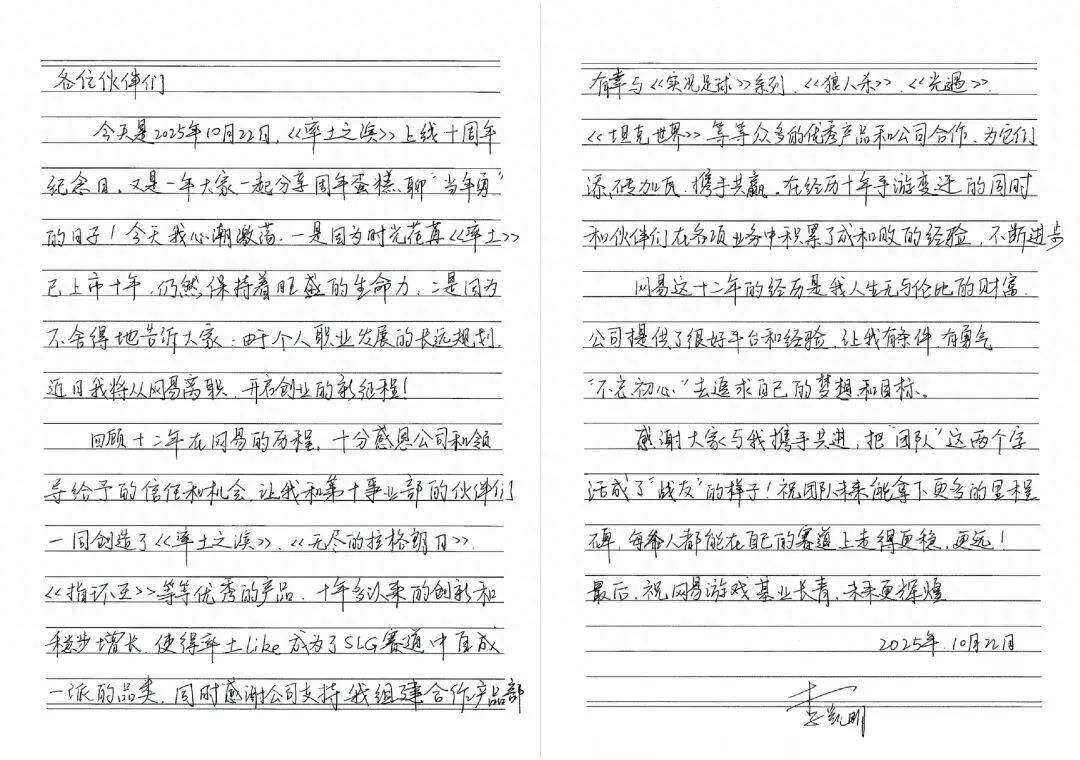 各位伙伴们
今天是2025年10月22日,《率土之滨》上线十周年
纪念日,又是一年大家一起分享周年蛋糕、聊"当年勇"
的日子!今天我心潮激荡,一是因为时光荏苒《率土》
已上市十年,仍然保持着旺盛的生命力,二是因为
不舍得地告诉大家,由于个人职业发展的长远规划,
近日我将从网易离职,开启创业的新征程!
回顾十二年在网易的历程,十分感恩公司和领
导给予的信任和机会,让我和第十事业部的伙伴们
一同创造了《率土之滨》、《无尽的拉格朗日》、
《指环王》等等优秀的产品,十年多以来的创新和
稳步增长,使得率土like成为了SLG赛道中自成
一派的品类,同时感谢公司支持我组建合作产品部
有幸与《实况足球》系列、《狼人杀》、《光遇》、
《坦克世界》等等众多的优秀产品和公司合作,为它们
添砖加瓦,携手共赢。在经历十年手游变迁的同时
和伙伴们在各项业务中积累了成和败的经验,不断进步
网易这十二年的经历是我人生无与伦比的财富,
公司提供了很好平台和经验,让我有条件,有勇气
"不忘初心"去追求自己的梦想和目标。
感谢大家与我携手共进,把"团队"这两个字
活成了"战友"的样子!祝团队未来能拿下更多的里程
碑,每个人都能在自己的赛道上走得更稳,更远!
最后,祝网易游戏基业长青,未来更辉煌
2025年10月22日
李凯明